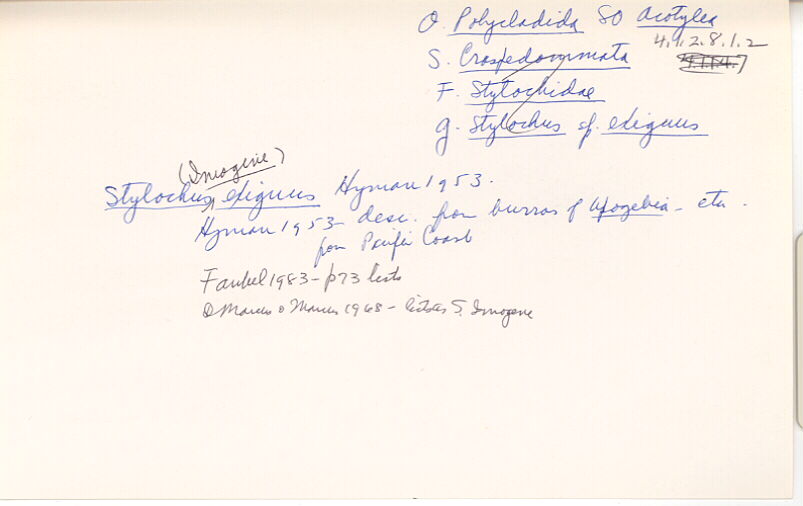 O. Polycladida SO Acotylea
4.1.2.8.1.2
S. Craspedommata
F. Stylochidae
g. Stylochus sp. exiguus
(Imogene)
Stylochus exiguus Hyman 1953.
Hyman 1953 - desc. from burrows of Upogebia - etc.
from Pacific Coast
Faubel 1983 - p73 lists
Marcus & Marcus 1968 - lists S. Imogene